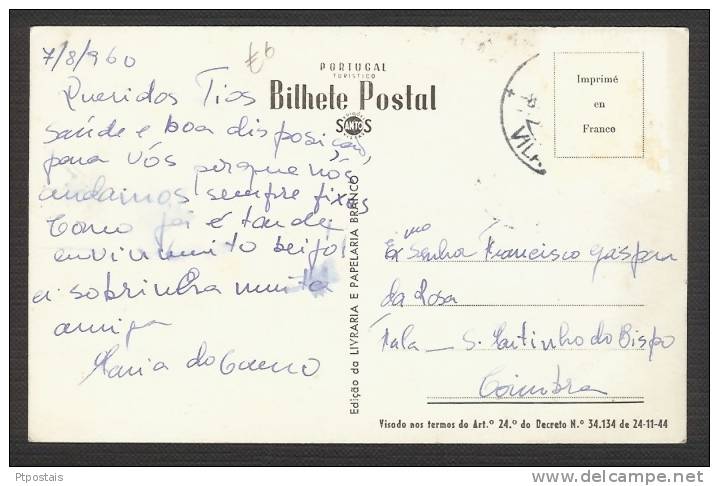 7/8/960
£6
PORTUGAL
TURÍSTICO
Bilhete Postal
SANTOS
Queridos Tios
saúde e boa disposição
para vós porque nós
andamos sempre fixes
Como já é tarde
envia muito beijos
a sobrinha muito
amiga
Maria do Carmo
Edição da LIVRARIA E PAPELARIA BRANCO
VILA
Imprimé
en
Franco
Exmo Senhor Francisco Gaspar
da Rosa
Fala — S. Martinho do Bispo
Coimbra
Visado nos termos do Art.º 24.º do Decreto N.º 34.134 de 24-11-44
Ptpostais
delcampe.net